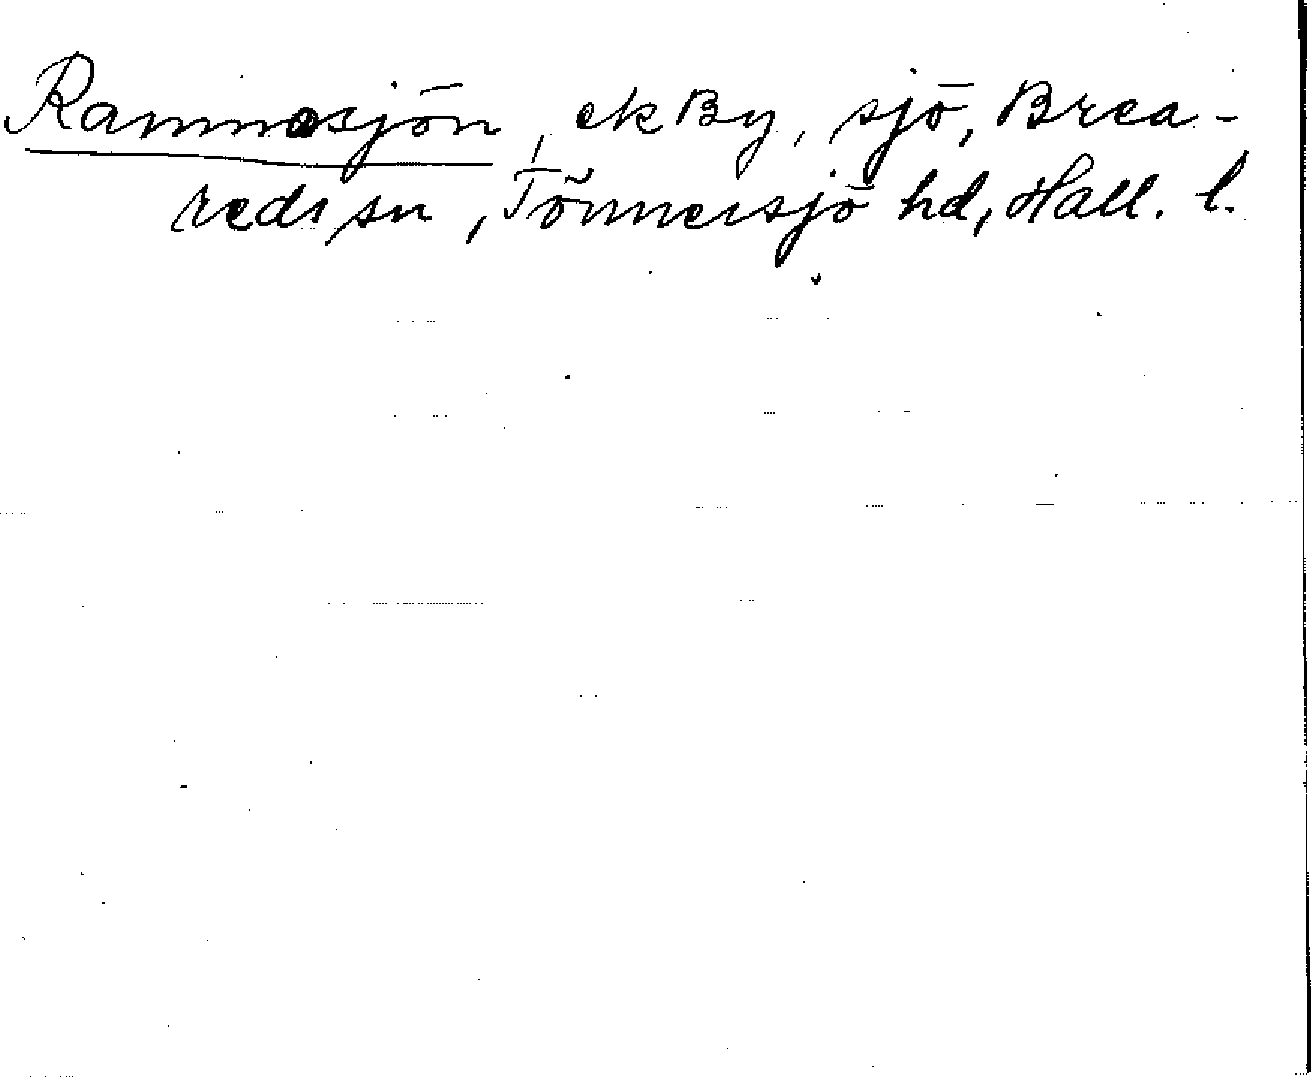 Ramnasjön, ekBy, sjö, Brea-
reds sn, Tönnersjö hd, Hall. l.